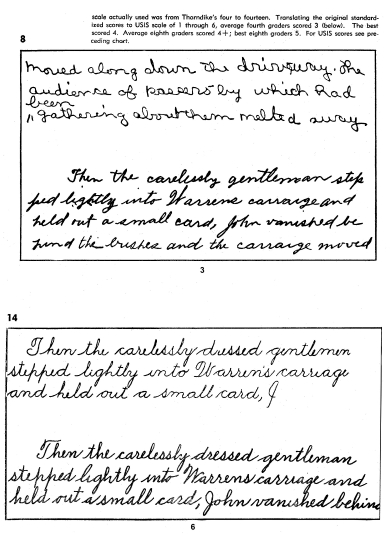 scale actually used was from Thorndike's four to fourteen. Translating the original standard-
ized scores to USIS scale of 1 through 6, average fourth graders scored 3 (below). The best
scored 4. Average eighth graders scored 4+; best eighth graders 5. For USIS scores see pre-
ceding chart.
8
moved along down the driveway. The
audience of passers by which had
been
" gathering about them melted away
Then the carelessly gentleman step
ped lightly into Warrens carraige and
held out a small card, John vanished be
hind the bushes and the carraige moved
3
14
Then the carelessly dressed gentlemen
stepped lightly into Warren's carriage
and held out a small card, J
Then the carelessly dressed gentleman
stepped lightly into Warrens carriage and
held out a small card, John vanished behind
6